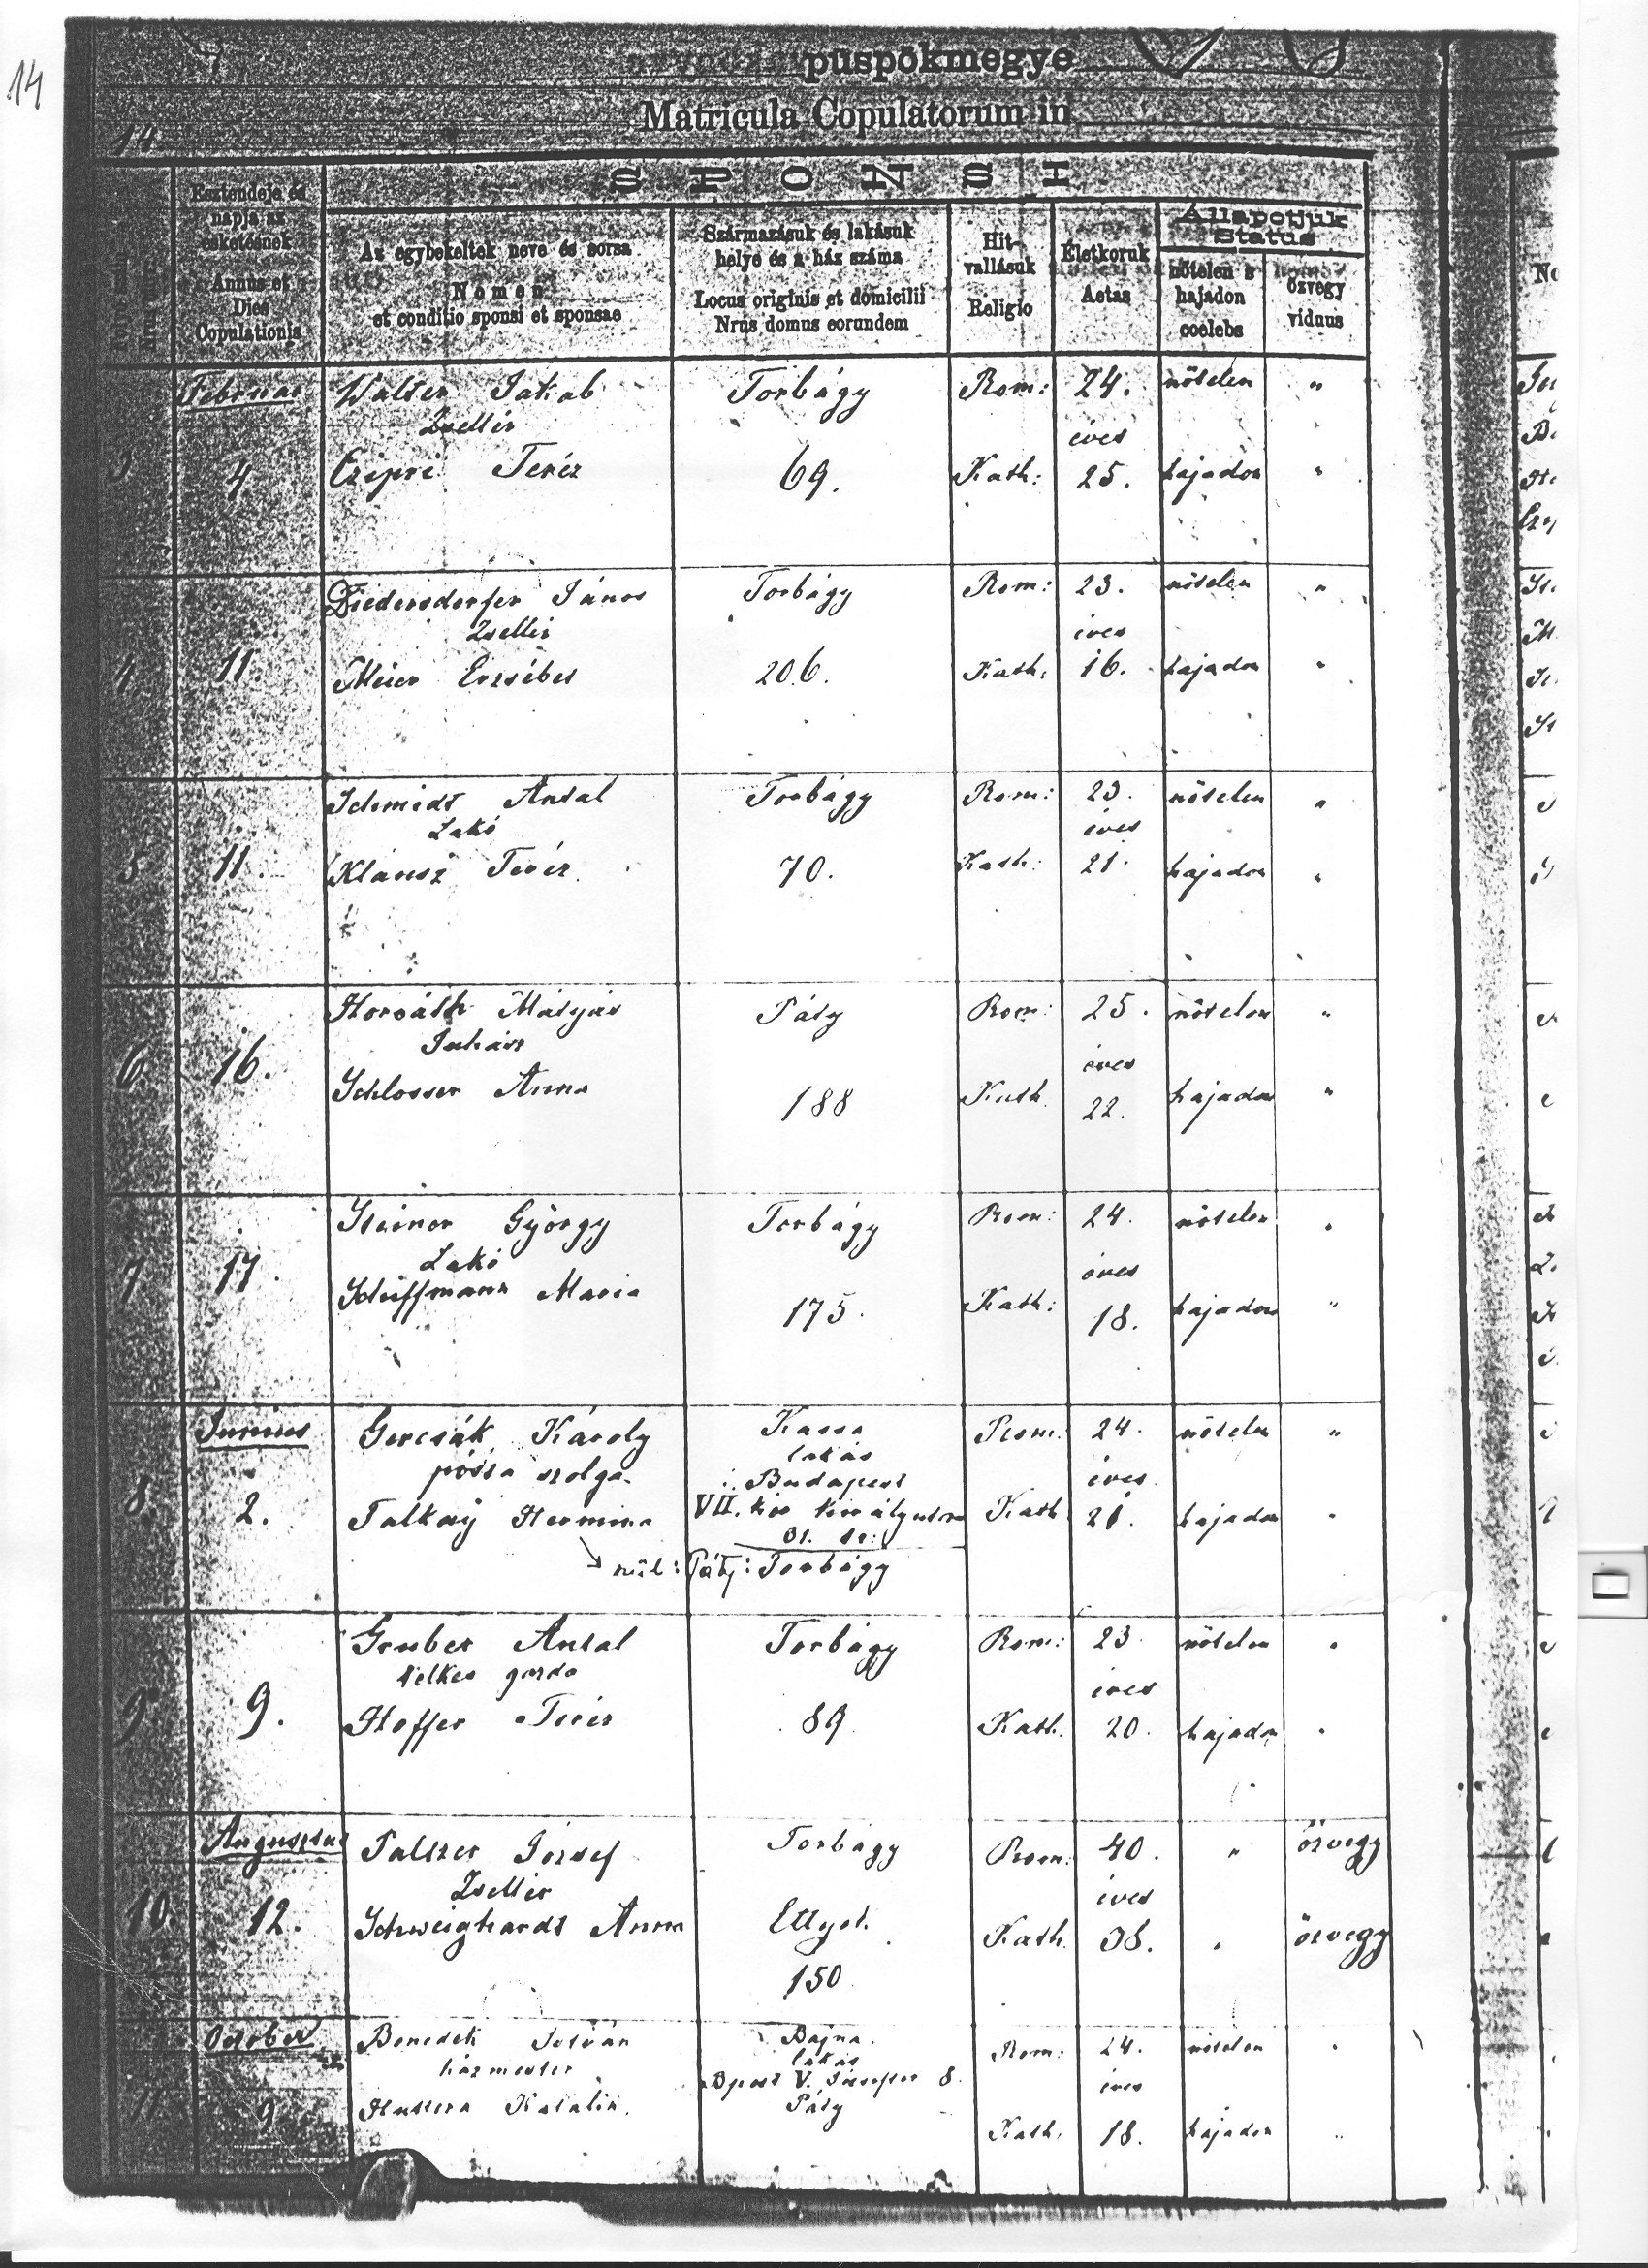 14
püspökmegye
Matricula Copulatorum in
14.
SPONSI
Esztendeje és
napja az
esketésnek
Annus et
Dies
Copulationis
Az egybekeltek neve és sorsa
Nomen
et conditio sponsi et sponsae
Származásuk és lakásuk
helye és a ház száma
Locus originis et domicilii
Nrus domus eorundem
Hit-
vallásuk
Religio
Életkoruk
Aetas
Állapotjuk
Status
nőtelen s
hajadon
coelebs
özvegy
viduus
Februar Walter Jakab Torbágy Rom: 24. nőtelen "
Zsellér éves
3 4 Czipri Teréz 69. Kath: 25. hajadon "
Diedersdorfer János Torbágy Rom: 23. nőtelen "
Zsellér éves
4. 11. Meier Erzsébet 206. Kath: 16. hajadon "
Schmidt Antal Torbágy Rom: 23. nőtelen "
Lakó éves
5 11. Klausz Teréz 70. Kath: 21. hajadon "
Horváth Mátyás Páty Rom: 25. nőtelen "
Juhász éves
6. 16. Schlosser Anna 188 Kath. 22. hajadon "
Steiner György Torbágy Rom: 24. nőtelen "
Lakó éves
7 17. Schiffmann Maria 175. Kath: 18. hajadon "
Junius Gercsák Károly Kassa Rom: 24. nőtelen "
pósta szolga lakás éves
i. Budapest
8. 2. Talkaij Hermina VII. ker király utca Kath 21. hajadon "
31. sz:
Páty: Torbágy
Gruber Antal Torbágy Rom: 23. nőtelen "
telkes gazda éves
9 9. Hoffer Teréz 89 Kath. 20. hajadon "
Augusztus Paltzer József Torbágy Rom: 40. " özvegy
Zsellér éves
10. 12. Schweighardt Anna Ettyek. Kath. 38. " özvegy
150
October Benedek István Bajna. Rom: 24. nőtelen "
házmester lakás éves
Bpest V. 8.
11 9 Huttera Katalin. Páty Kath. 18. hajadon "